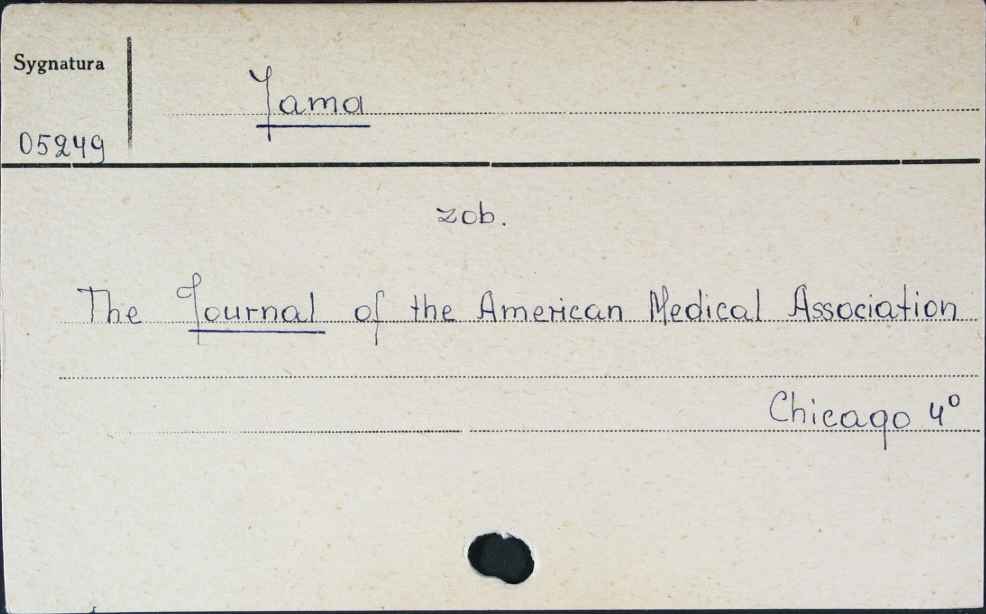 Sygnatura
Jama
05249
zob.
The Journal of the American Medical Association
Chicago 4°